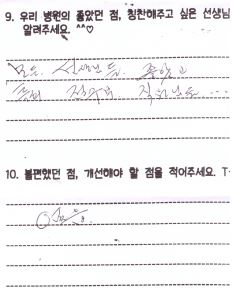 9. 우리 병원의 좋았던 점, 칭찬해주고 싶은 선생님
알려주세요. ^^♡
모든 선생님들 좋았고
특히
10. 불편했던 점, 개선해야 할 점을 적어주세요. T
없음